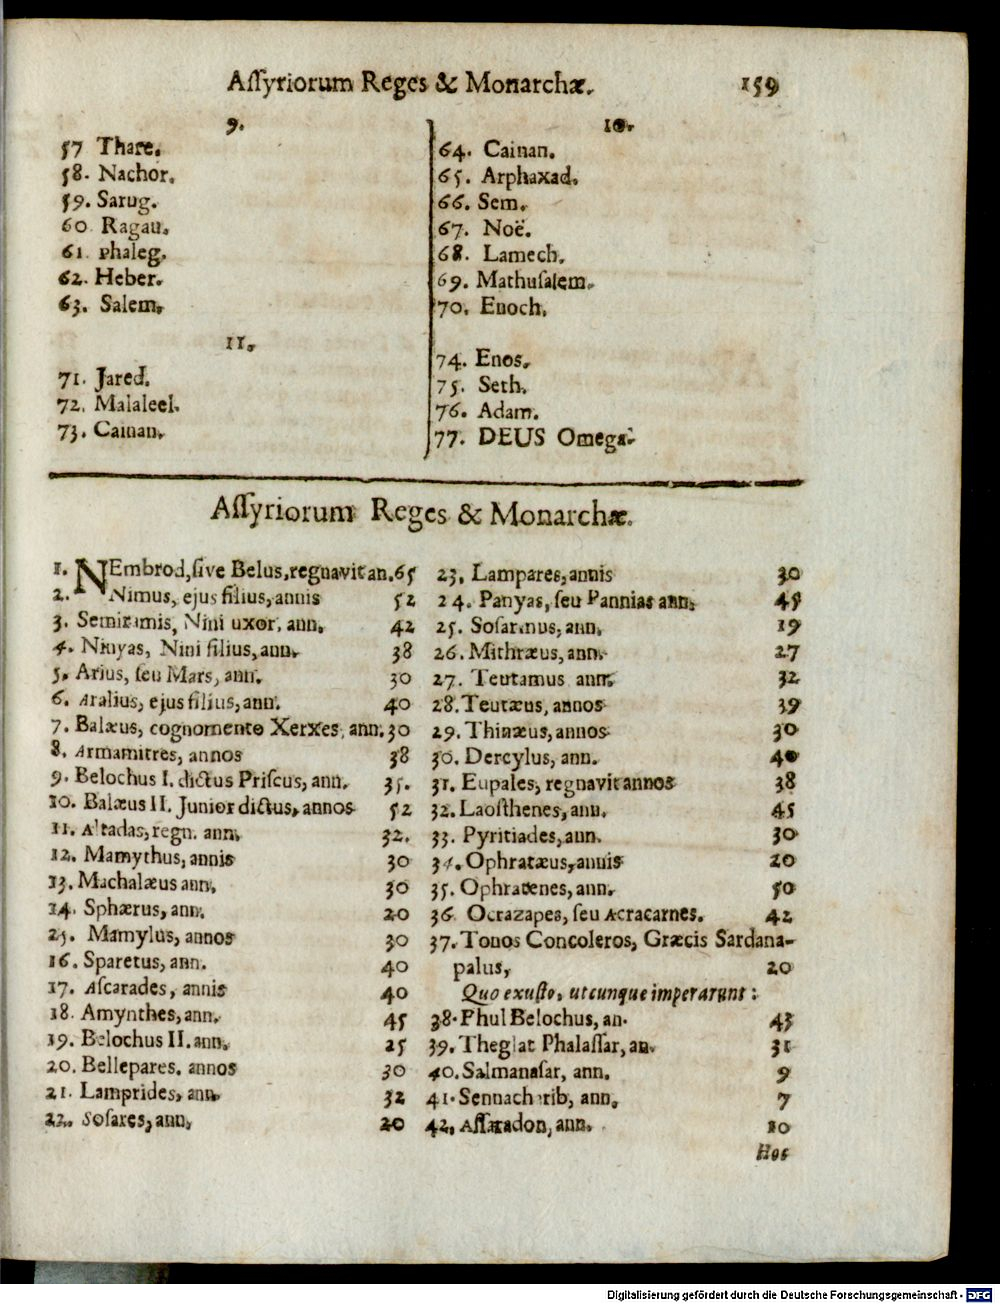 Aſſyriorum Reges & Monarchæ. 159
9.
57 Thare.
58. Nachor.
59. Sarug.
60 Ragau.
61. Phaleg.
62. Heber.
63. Salem.
11.
71. Jared.
72. Malaleel.
73. Cainan.
10.
64. Cainan.
65. Arphaxad.
66. Sem.
67. Noë.
68. Lamech.
69. Mathuſalem.
70. Enoch.
74. Enos.
75. Seth.
76. Adam.
77. DEUS Omega.
Aſſyriorum Reges & Monarchæ.
1. NEmbrod, ſive Belus, regnavit an. 65
2. Nimus, ejus filius, annis 52
3. Semiramis, Nini uxor, ann. 42
4. Ninyas, Nini filius, ann. 38
5. Arius, ſeu Mars, ann. 30
6. Aralius, ejus filius, ann. 40
7. Balæus, cognomento Xerxes, ann. 30
8. Armamitres, annos 38
9. Belochus I. dictus Priſcus, ann. 35.
10. Balæus II. Junior dictus, annos 52
11. Altadas, regn. ann. 32.
12. Mamythus, annis 30
13. Machalæus ann. 30
14. Sphærus, ann. 20
25. Mamylus, annos 30
16. Sparetus, ann. 40
17. Aſcarades, annis 40
18. Amynthes, ann. 45
19. Belochus II. ann. 25
20. Bellepares. annos 30
21. Lamprides, ann. 32
22. Soſares, ann. 20
23. Lampares, annis 30
24. Panyas, ſeu Pannias ann. 45
25. Soſarmus, ann. 19
26. Mithræus, ann. 27
27. Teutamus ann. 32
28. Teutæus, annos 39
29. Thinæus, annos 30
30. Dercylus, ann. 40
31. Eupales, regnavit annos 38
32. Laoſthenes, ann. 45
33. Pyritiades, ann. 30
34. Ophratæus, annis 20
35. Ophratenes, ann. 50
36 Ocrazapes, ſeu Acracarnes. 42
37. Tonos Concoleros, Græcis Sardana-
palus, 20
Quo exuſto, utcunque imperarunt:
38. Phul Belochus, an. 43
39. Theglat Phalaſſar, an. 31
40. Salmanaſar, ann. 9
41. Sennacherib, ann. 7
42. Aſſaradon, ann. 10
Hos
Digitalisierung gefördert durch die Deutsche Forschungsgemeinschaft - DFG